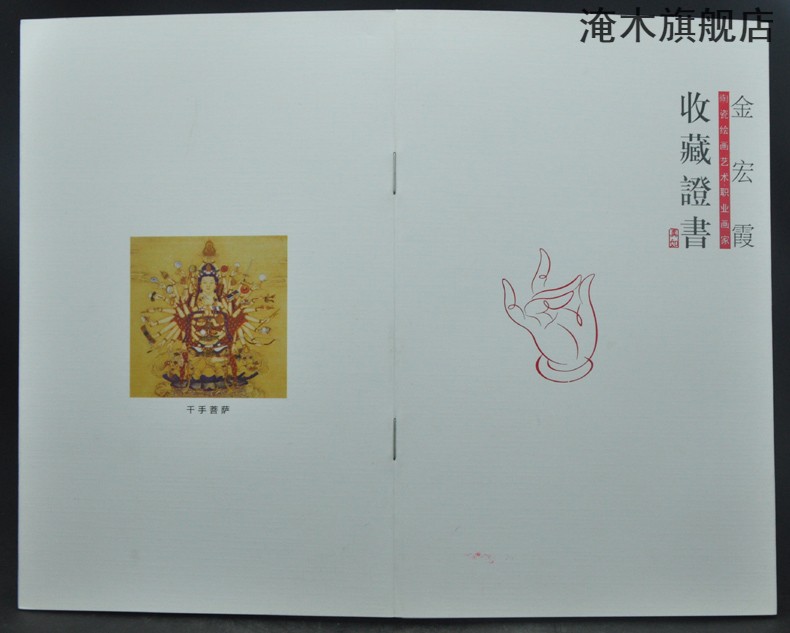 淹木旗舰店
金宏霞
瓷绘画艺术职业画家
收藏證書
千手菩萨